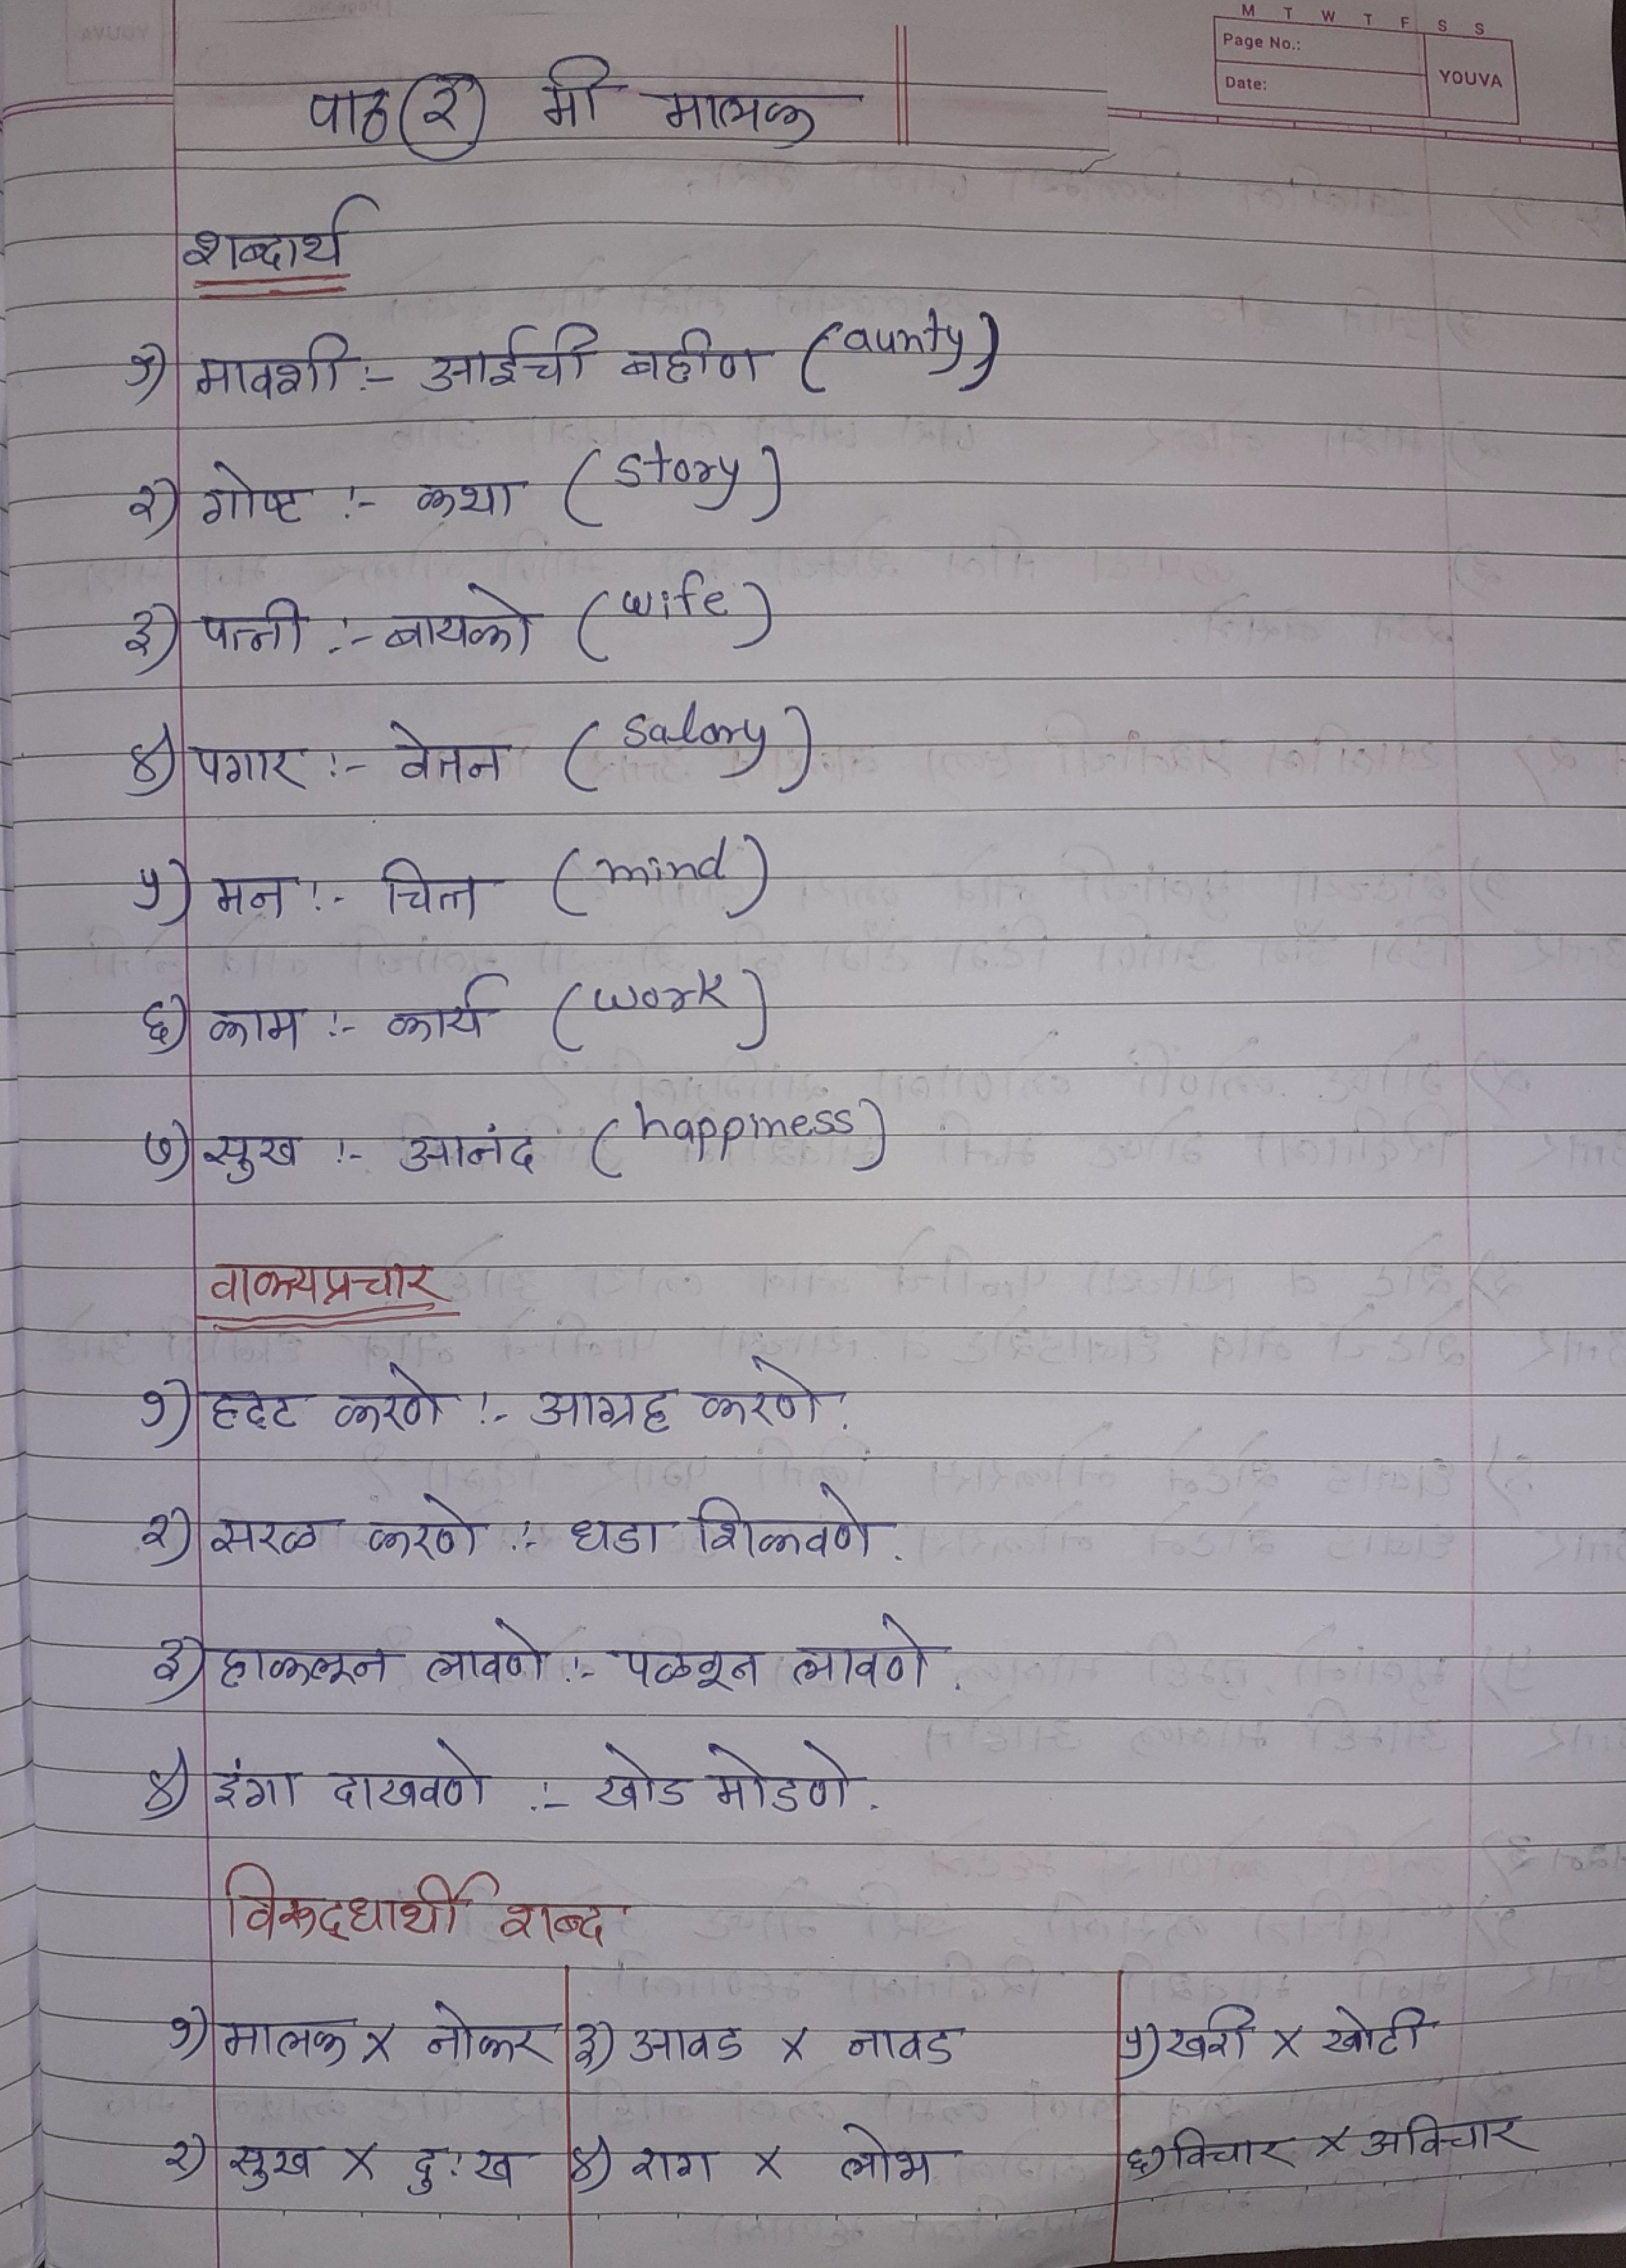 M T W T F S S
Page No.:
Date:
YOUVA
पाठ (२) मी मालक
शब्दार्थ
१) मावशी :- आईची बहीण (aunty)
२) गोष्ट :- कथा (story)
३) पत्नी :- बायको (wife)
४) पगार :- वेतन (salary)
५) मन :- चित्त (mind)
६) काम :- कार्य (work)
७) सुख :- आनंद (happiness)
वाक्यप्रचार
१) हट्ट करणे :- आग्रह करणे.
२) सरळ करणे :- धडा शिकवणे.
३) हाकलून लावणे :- पळवून लावणे.
४) इंगा दाखवणे :- खोड मोडणे.
विरुद्धार्थी शब्द
१) मालक x नोकर ३) आवड x नावड ५) खरी x खोटी
२) सुख x दुःख ४) राग x लोभ ६) विचार x अविचार